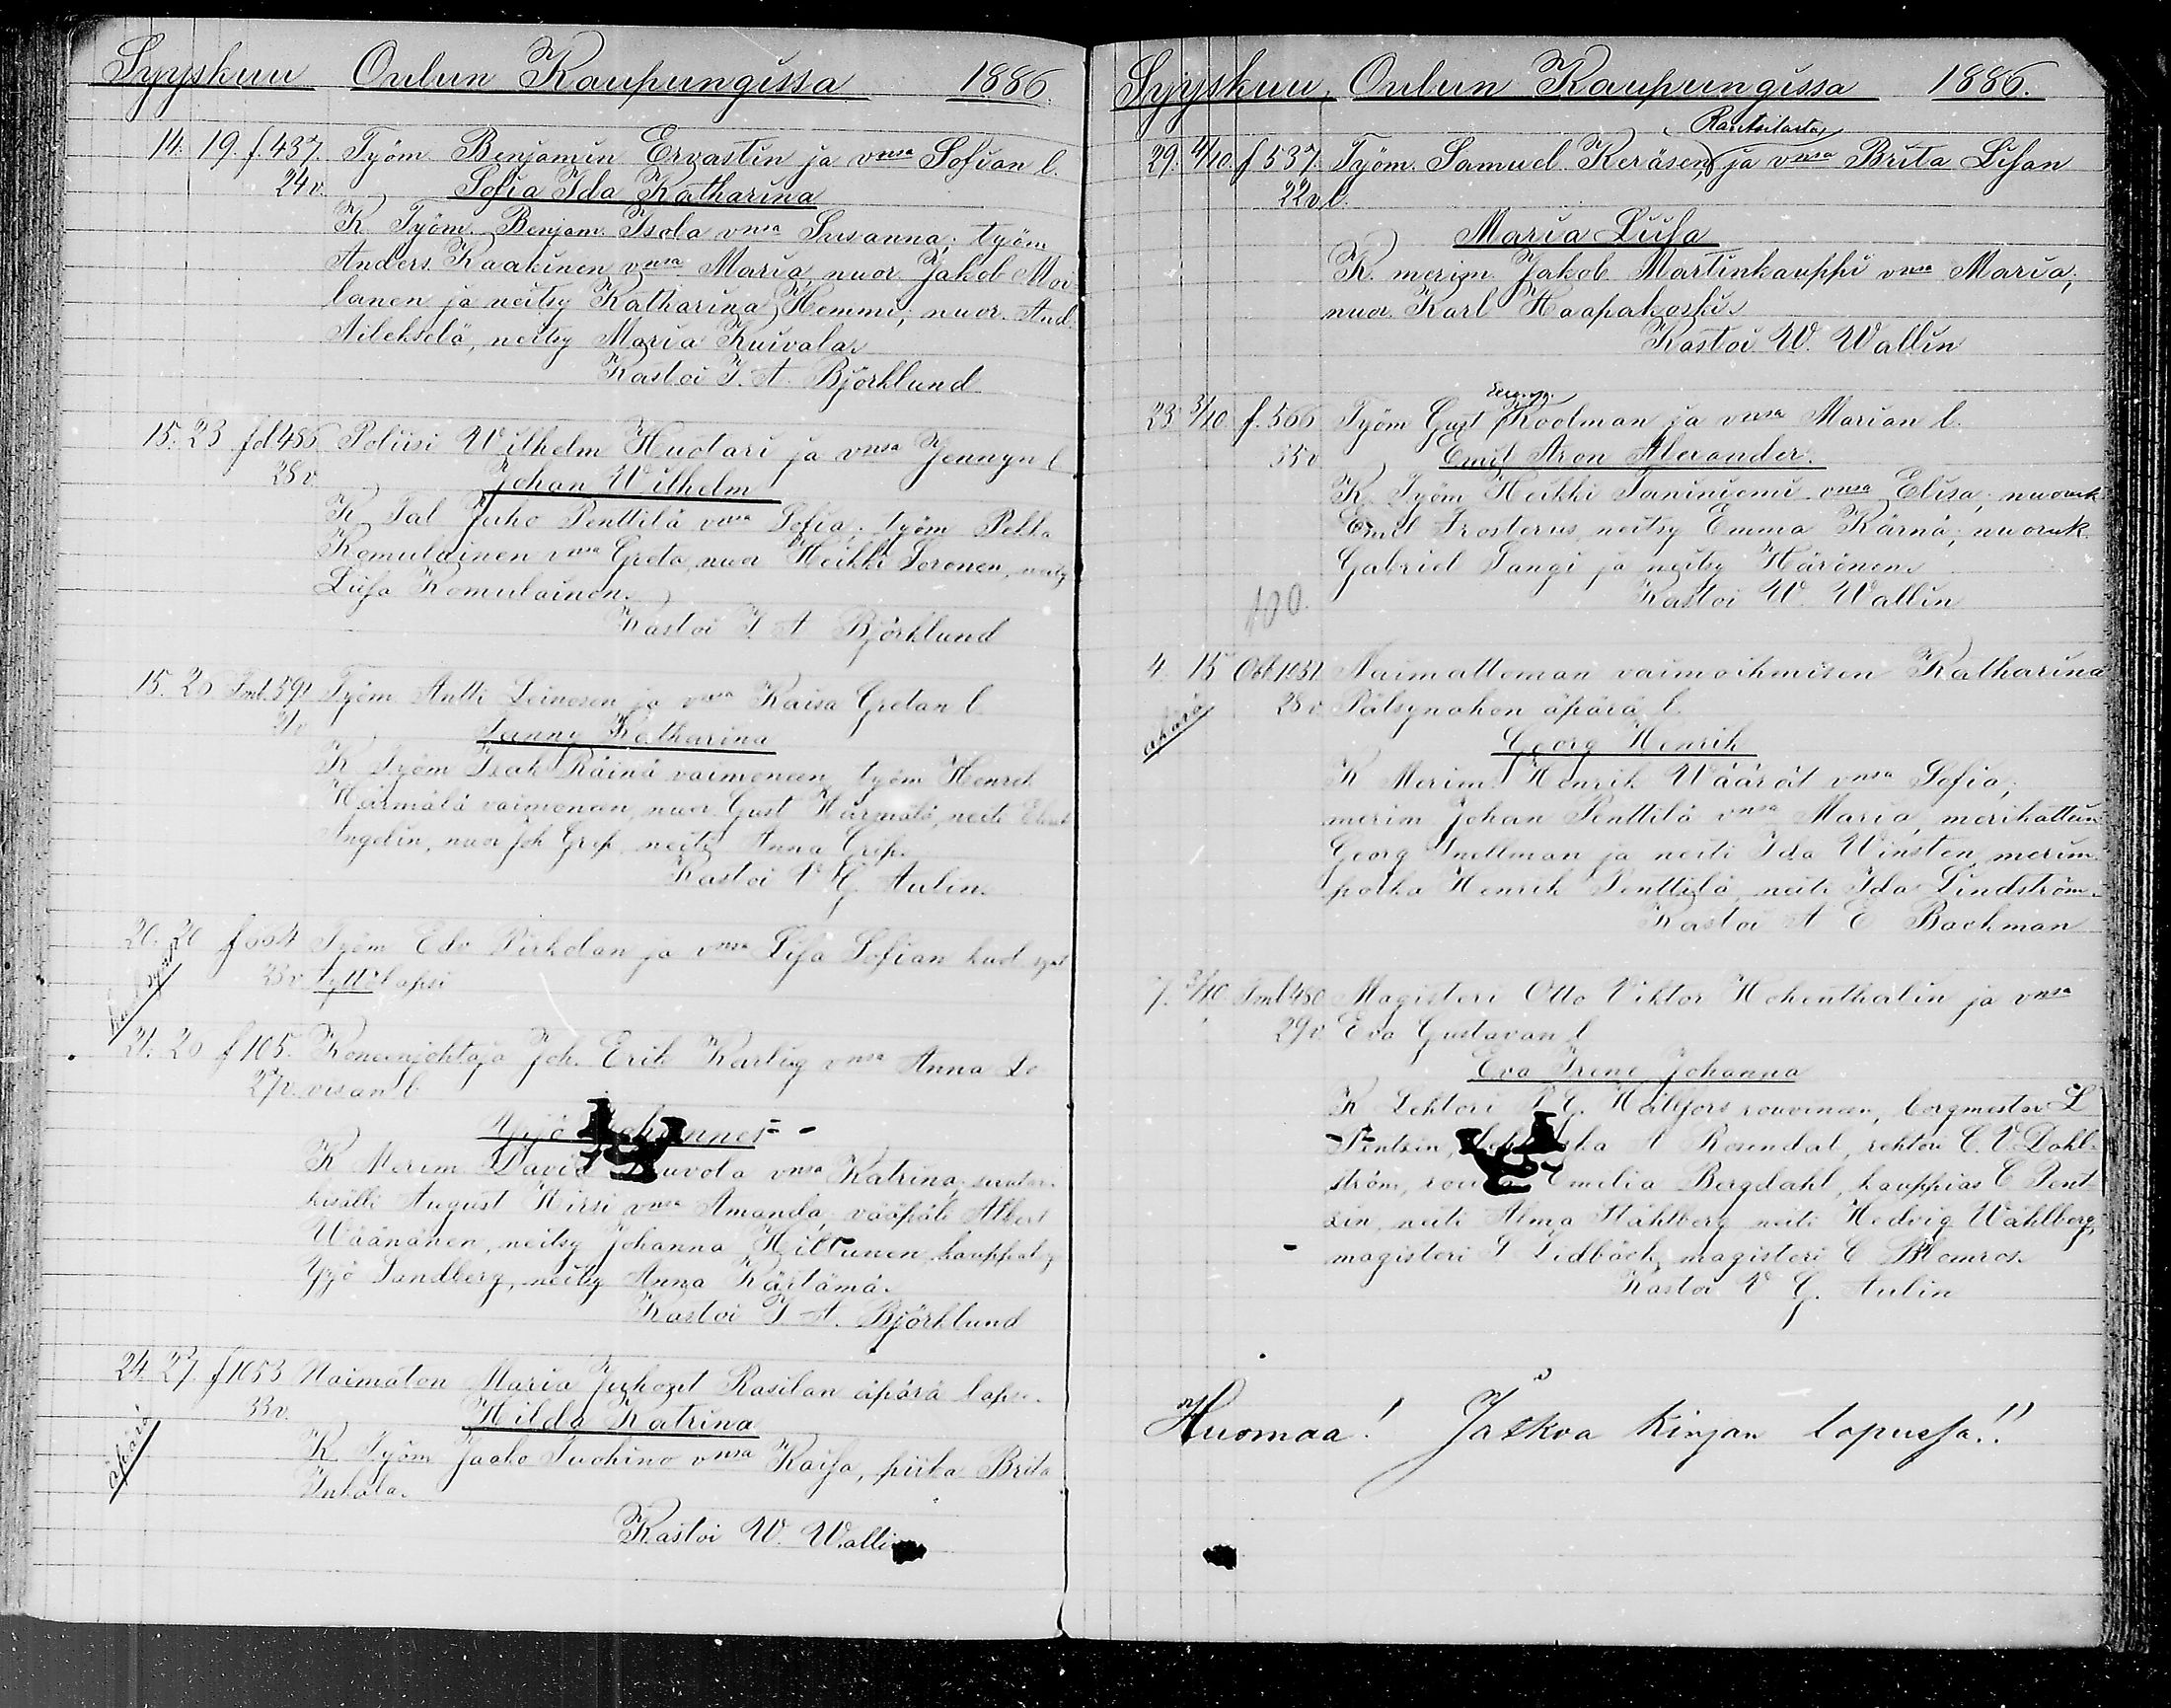 Syyskuu Oulun Kaupungissa 1886.
14. 19. f. 437. Työm Benjamin Ervastin ja vnsa Sofian l.
24 v. Sofia Ida Katharina
K Työm Benjam. Isola vnsa Susanna; työm
Anders Kaakinen vnsa Maria, nuor. Jakob
lanen ja neitsy Katharina Hemmi; nuor. And.
neitsy Maria Kuivala.
Kastoi J. A. Björklund
15. 23 fol 486 Poliisi Wilhelm Huotari ja vnsa Jennyn l
28 v Johan Wilhelm
K Tal Juho Penttilä vnsa Sofia; työm Pekka
Romulainen vnsa Greta, nuor Heikki Soronen, neitsy
Liisa Romulainen.
Kastoi J A Björklund
15. 20 Sml. 591 Työm Antti Leinosen ja vnsa Kaisa Gretan l.
Fanny Katharina
K Työm Isak Räinä vaimoneen, työm Henrik
Härmälä vaimoneen, nuor Gust Härmälä, neiti
Angelin, nuor Joh Grep, neiti Anna Grep.
Kastoi V G Aulin.
20. 20 f 664 Työm Edv Pirkolan ja vnsa Lisa Sofian kuol synt
33 v tyttölapsi
kuol synt
21. 20 f 105. Koneenjohtaja Joh. Erik Karling vnsa Anna Lo
27 v. visan l.
Yrjö Johannes
K Merim David vnsa Katrina,
kisälli August Hirsi vnsa Amanda, vääpäli Albert
Wäänänen, neitsy Johanna Hiltunen,
Yrjö Sandberg, neitsy Anna Kärtämä.
Kastoi J. A. Björklund
24. 27. f 1053 Naimaton Maria Rasilan äpärä lapsi.
33 v. Hilda Katrina
äpärä
K. Työm Jaako vnsa Kaisa, piika Brita
Inkala.
Kastoi W. Wallin
Syyskuu, Oulun Kaupungissa 1886.
Rantsilasta
29. 4/10. f 537. Työm. Samuel Keräsen, ja vnsa Brita Lisan
22 v. l.
Maria Liisa
K. merim. Jakob Martinkauppi vnsa Maria,
nuor. Karl Haapakoski.
Kastoi W. Wallin
23 3/10 f. 566 Työm Gust Roolman ja vnsa Marian l.
35 v Emil Aron Alexander.
K. Työm Heikki Taniniemi vnsa Elisa; nuoruk
Emil Frosterus, neitsy Emma Kärnä; nuoruk.
Gabriel Sangi ja neitsy Härönen.
Kastoi W. Wallin
100.
4. 15 1031 Naimattoman vaimoihmisen Katharina
28 v. Pätsynahon äpärä l.
äpärä
Georg Henrik
K Merim. Henrik Wäärät vnsa Sofia,
merim Johan Penttilä vnsa Maria, merikattein
Georg Snellman ja neiti Ida Winsten, merim.
poika Henrik Penttilä, neiti Ida Lindström.
Kastoi A E Backman
7. 3/10. Sml 480 Magisteri Otto Viktor Hohenthalin ja vnsa
29 v. Eva Gustavan l
Eva Irene Johanna
K Lehtori Hällfors rouvineen, borgmestar L
Pentzin, A Rosendal, rehtori C. V. Dahl-
ström, rouva Emelia Bergdahl, kauppias C Pent-
zin, neiti Alma Ståhlberg, neiti Hedvig Wåhlberg,
magisteri S Lidbäck, magisteri C Blomros.
Kastoi V G. Aulin
Huomaa! Jatkoa kirjan lopussa!!